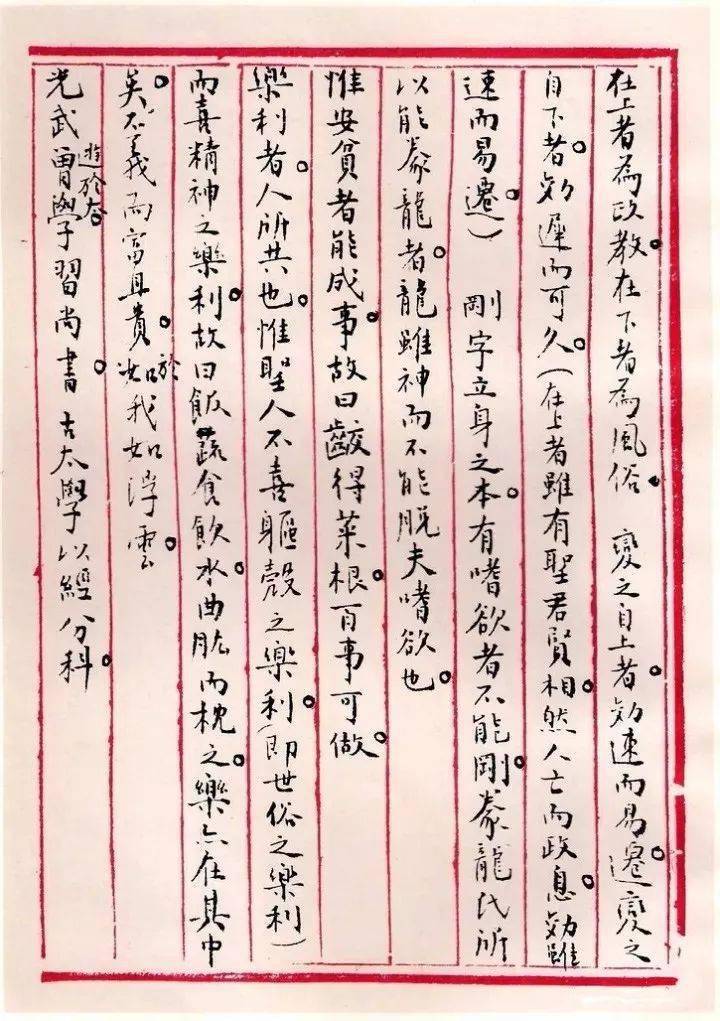 在上者為政教。在下者為風俗。 變之自上者。効速而易遷。變之
自下者。効遲而可久。(在上者雖有聖君賢相。然人亡而政息。効雖
速而易遷。) 剛字立身之本。有嗜欲者不能剛。豢龍氏所
以能豢龍者。龍雖神而不能脫夫嗜欲也。
惟安貧者能成事。故曰齩得菜根。百事可做。
樂利者。人所共也。惟聖人不喜軀殼之樂利。(即世俗之樂利)
而喜精神之樂利。故曰飯蔬食飲水。曲肱而枕之。樂亦在其中
矣。不義而富且貴。於我如浮雲。
光武遊於太學習尚書。 古太學以經分科。